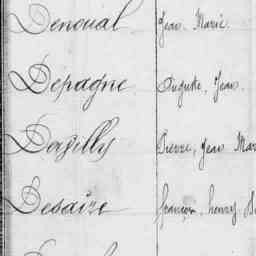 Denoual Jean Marie
Depagne Auguste, Jean
Dergilly Pierre, Jean Mar
Desaize françois, henry